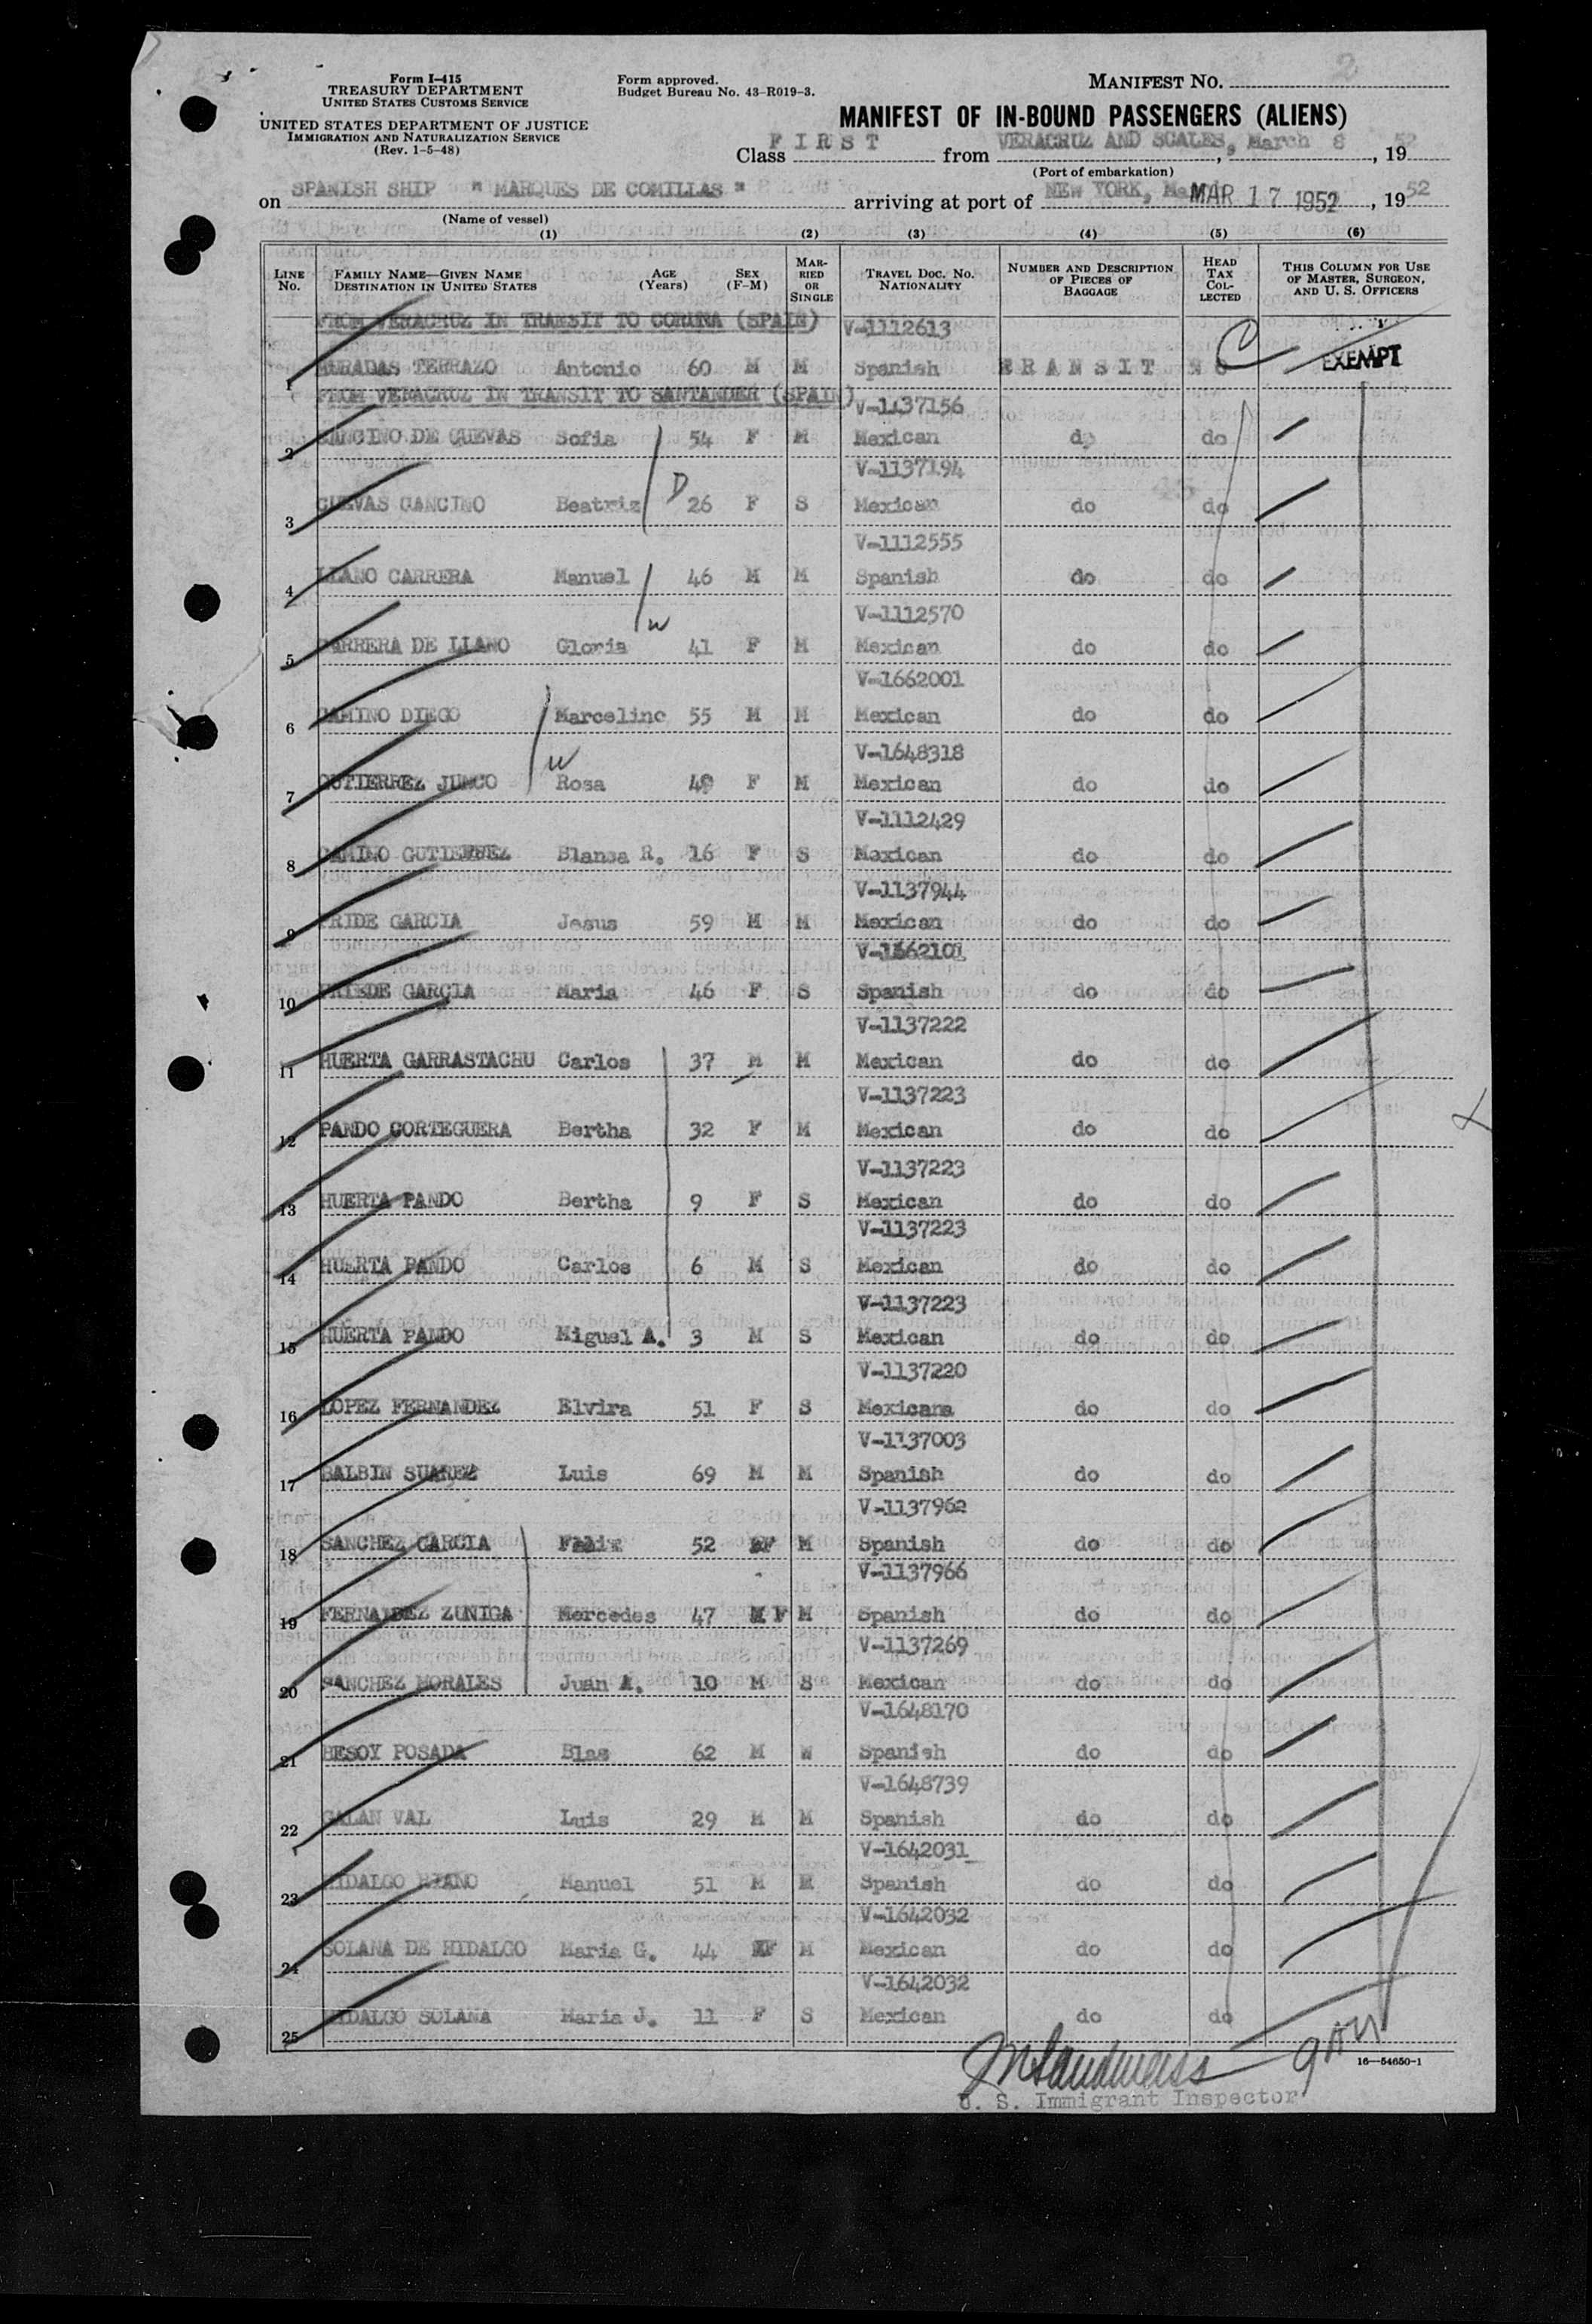 Form I-415
TREASURY DEPARTMENT
UNITED STATES CUSTOMS SERVICE
UNITED STATES DEPARTMENT OF JUSTICE
IMMIGRATION AND NATURALIZATION SERVICE
(Rev. 1-5-48)
Form approved.
Budget Bureau No. 43-R019-3.
MANIFEST NO. 2
MANIFEST OF IN-BOUND PASSENGERS (ALIENS)
Class FIRST from VERACRUZ AND SCALES, March 8, 1952
(Port of embarkation)
on SPANISH SHIP "MARQUES DE COMILLAS" arriving at port of NEW YORK, MAR 17 1952, 1952
(Name of vessel)
(1) (2) (3) (4) (5) (6)
LINE No. FAMILY NAME—GIVEN NAME DESTINATION IN UNITED STATES AGE (Years) SEX (F-M) MARRIED OR SINGLE TRAVEL DOC. NO. NATIONALITY NUMBER AND DESCRIPTION OF PIECES OF BAGGAGE HEAD TAX COLLECTED THIS COLUMN FOR USE OF MASTER, SURGEON, AND U. S. OFFICERS
FROM VERACRUZ IN TRANSIT TO CORUÑA (SPAIN) V-1112613
1 TERRAZO Antonio 60 M M Spanish TRANSIT NO C EXEMPT
FROM VERACRUZ IN TRANSIT TO SANTANDER (SPAIN) V-1137156
2 CANCINO DE CUEVAS Sofia 54 F M Mexican do do
V-1137194
3 CUEVAS CANCINO Beatriz D 26 F S Mexican do do
V-1112555
4 LLANO CARRERA Manuel 46 M M Spanish do do
V-1112570
5 CARRERA DE LLANO Gloria W 41 F M Mexican do do
V-1662001
6 CAMINO DIEGO Marcelino 55 M M Mexican do do
V-1648318
7 GUTIERREZ JUNCO W Rosa 49 F M Mexican do do
V-1112429
8 CAMINO GUTIERREZ Blanca R. 16 F S Mexican do do
V-1137944
9 PRIDE GARCIA Jesus 59 M M Mexican do do
V-1662101
10 GARCIA Maria 46 F S Spanish do do
V-1137222
11 HUERTA GARRASTACHU Carlos 37 M M Mexican do do
V-1137223
12 PANDO CORTEGUERA Bertha 32 F M Mexican do do
V-1137223
13 HUERTA PANDO Bertha 9 F S Mexican do do
V-1137223
14 HUERTA PANDO Carlos 6 M S Mexican do do
V-1137223
15 HUERTA PANDO Miguel A. 3 M S Mexican do do
V-1137220
16 LOPEZ FERNANDEZ Elvira 51 F S Mexicana do do
V-1137003
17 BALBIN SUAREZ Luis 69 M M Spanish do do
V-1137962
18 SANCHEZ GARCIA Felix 52 F M Spanish do do
V-1137966
19 FERNANDEZ ZUNIGA Mercedes 47 F M Spanish do do
V-1137269
20 SANCHEZ MORALES Juan A. 10 M S Mexican do do
V-1648170
21 BESOY POSADA Blas 62 M W Spanish do do
V-1648739
22 GALAN VAL Luis 29 M M Spanish do do
V-1642031
23 HIDALGO Manuel 51 M M Spanish do do
V-1642032
24 SOLANA DE HIDALGO Maria G. 44 F M Mexican do do
V-1642032
25 HIDALGO SOLANA Maria J. 11 F S Mexican do do
U. S. Immigrant Inspector
16—54650-1